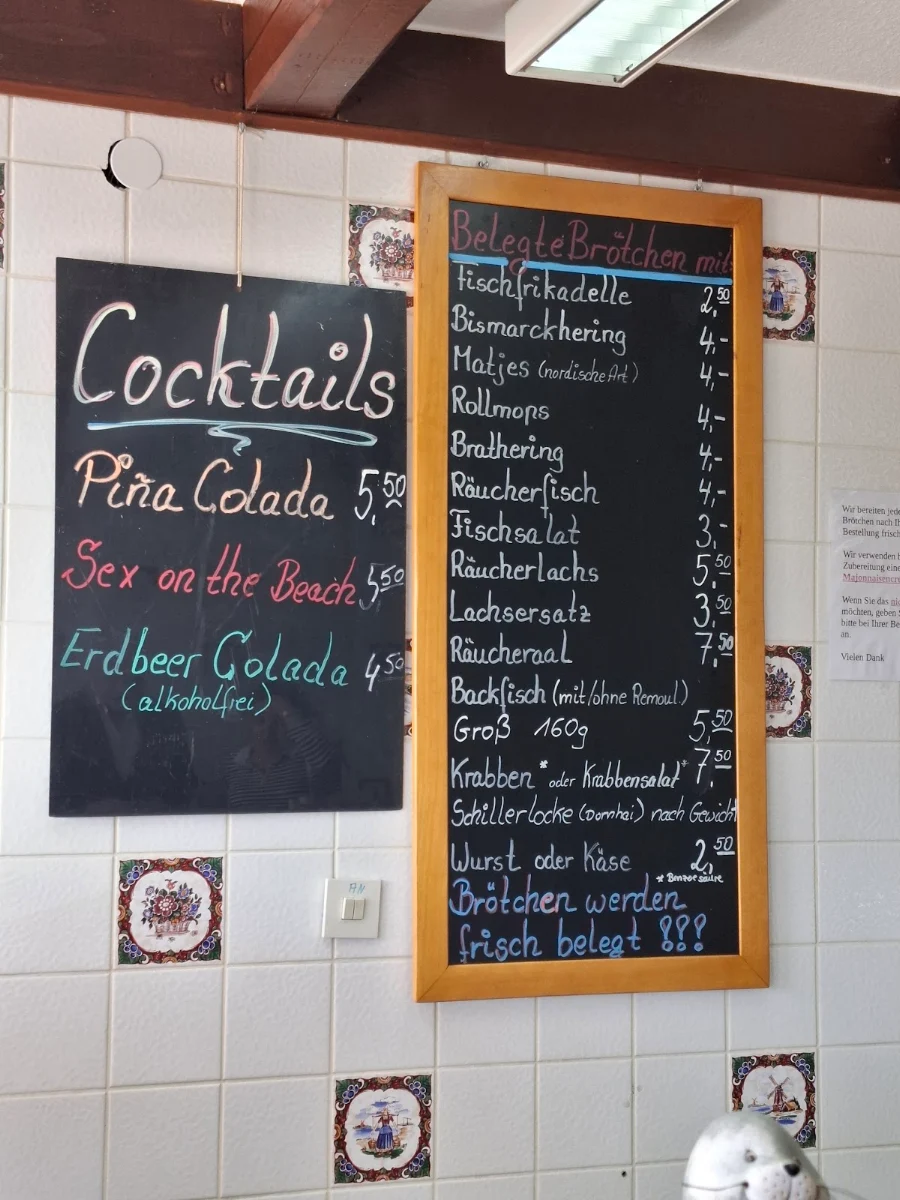 Cocktails
Piña Colada 5,50
Sex on the Beach 5,50
Erdbeer Colada 4,50
(alkoholfrei)
Belegte Brötchen mit:
Fischfrikadelle 2,50
Bismarckhering 4,-
Matjes (nordische Art) 4,-
Rollmops 4,-
Brathering 4,-
Räucherfisch 4,-
Fischsalat 3,-
Räucherlachs 5,50
Lachsersatz 3,50
Räucheraal 7,50
Backfisch (mit/ohne Remoul.)
Groß 160g 5,50
Krabben* oder Krabbensalat* 7,50
Schillerlocke (Dornhai) nach Gewicht
Wurst oder Käse 2,50
* Benzoesäure
Brötchen werden
frisch belegt !!!
AN
Wir bereiten jede
Brötchen nach Ih
Bestellung frisch
Wir verwenden
Zubereitung eine
Majonnaisencre
Wenn Sie das
möchten, geben
bitte bei Ihrer Be
an.
Vielen Dank